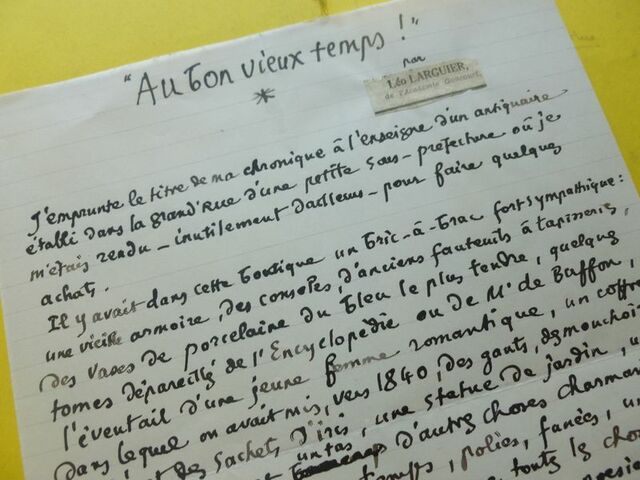 "Au bon vieux temps!"
par
Léo LARGUIER,
de l'Académie Goncourt.
*
J'emprunte le titre de ma chronique à l'enseigne d'un antiquaire
établi dans la grand'rue d'une petite sous-préfecture où je
m'étais rendu - inutilement d'ailleurs - pour faire quelques
achats.
Il y avait dans cette boutique un bric-à-brac fort sympathique:
une vieille armoire, des consoles, d'anciens fauteuils à tapisseries,
des vases de porcelaine du bleu le plus tendre, quelques
tomes dépareillés de l'Encyclopédie ou de Mr de Buffon,
l'éventail d'une jeune femme romantique, un coffret
dans lequel on avait mis, vers 1840, des gants, des mouchoi
des sachets d'iris, une statue de jardin, u
un tas d'autres choses charman
polies, fanées, un
toutes les cho